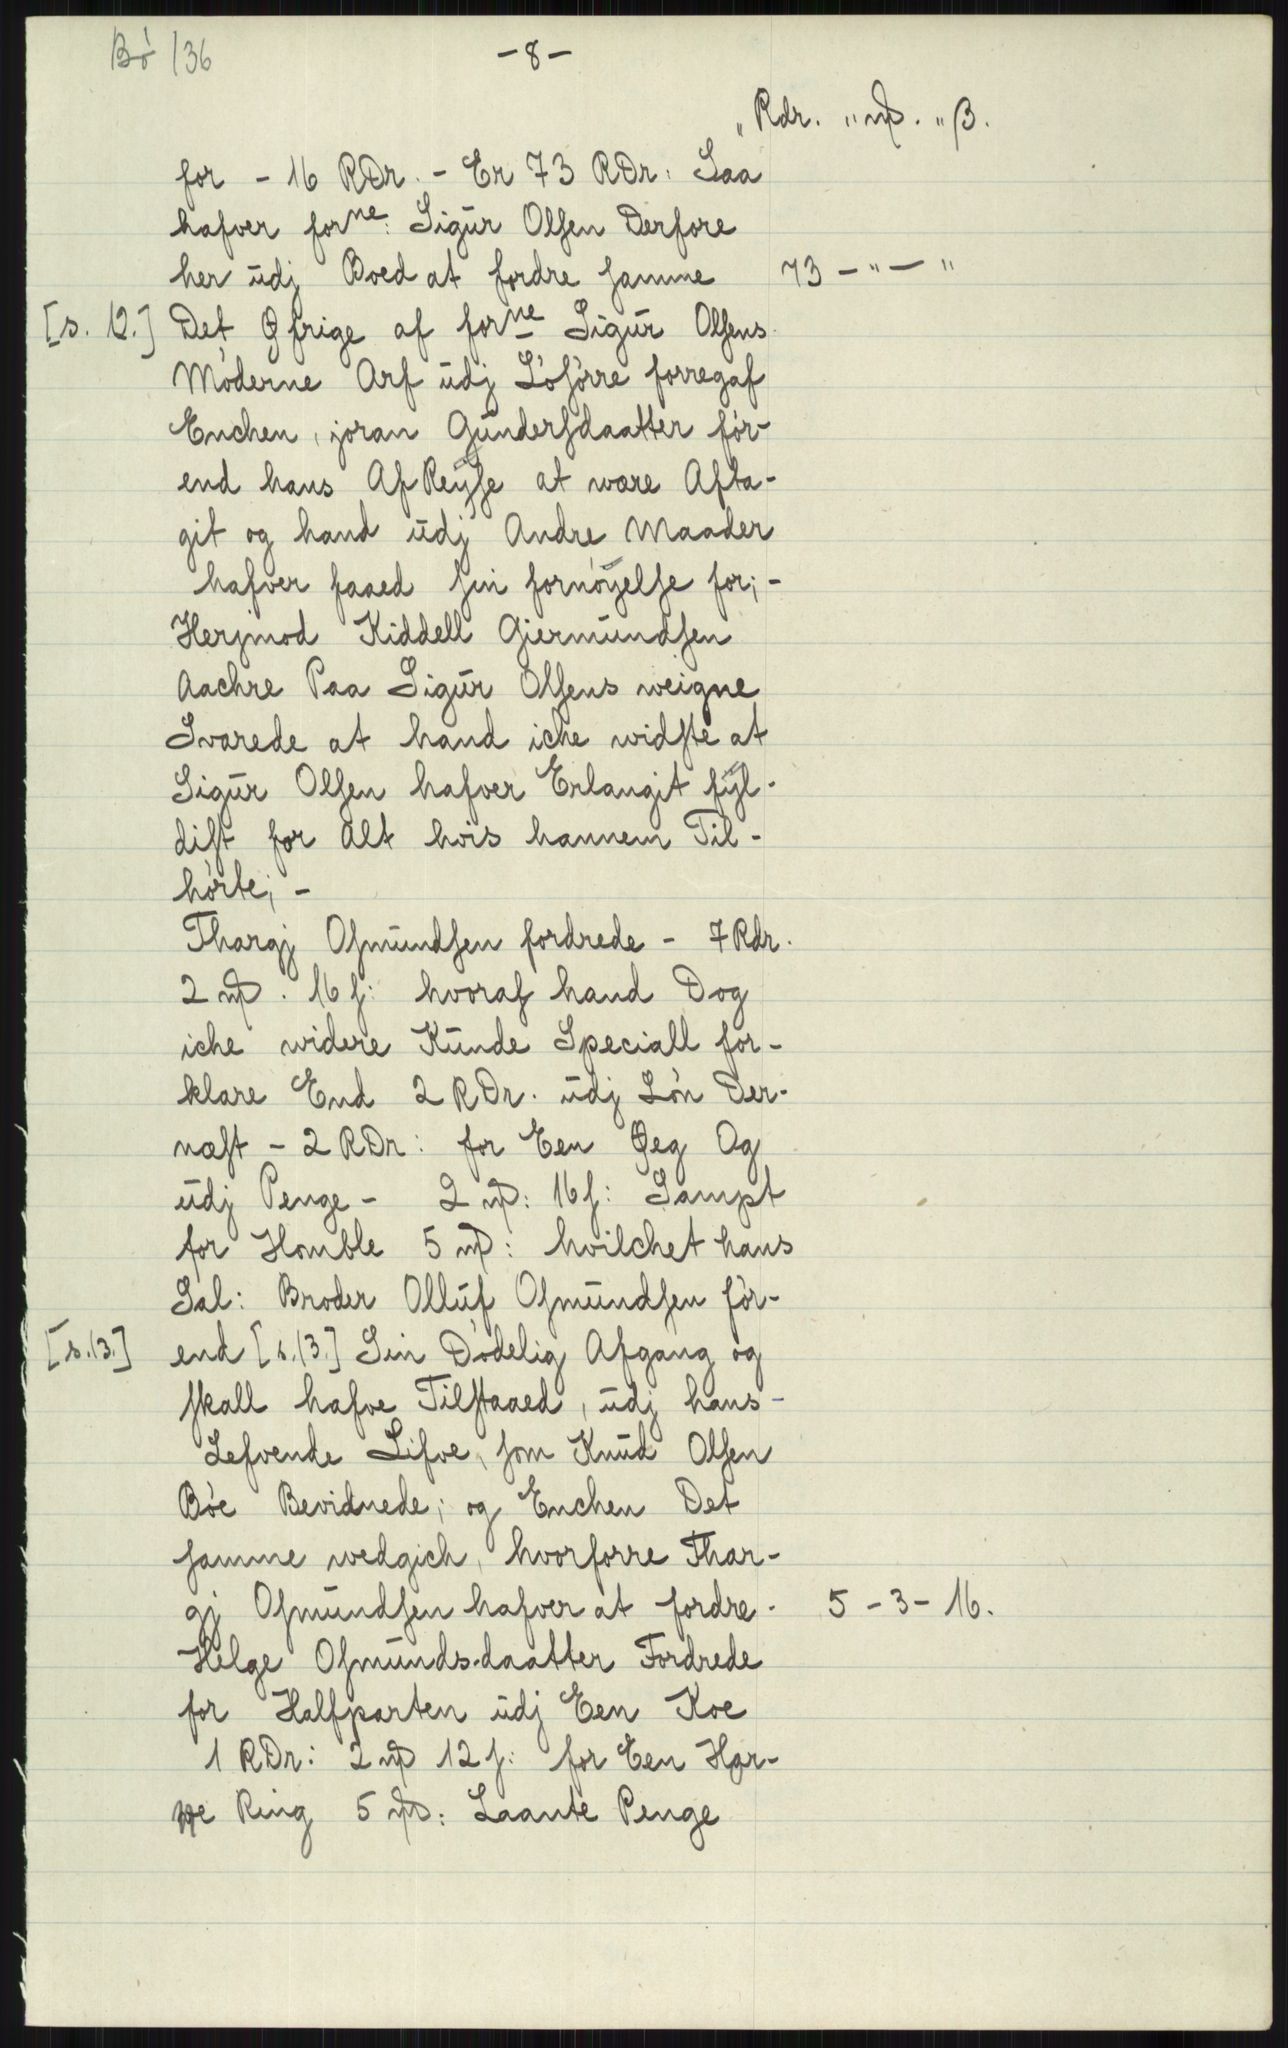 Bö 136
- 8 -
" Rdr. " mƿ. " β.
for - 16 RDr. - Er 73 RDr: Saa
hafver forne: Sigūr Olsen Derfore
her ūdj Boed at fordre samme 73 - " - "
[s. 12.] Det Øfrige af forne Sigūr Olsens
Møderne Arf ūdj Løsørre forregaf
Enchen, joran Gūndersdaatter før-
end hans AfReyse at wære Afta-
git og hand ūdj Andre Maader
hafver faaed sin fornøyelse for; -
Herjmod Kiddell Giermūndsen
Aachre Paa Sigūr Olsens weigne
Svarede at hand iche widste at
Sigūr Olsen hafver Erlangit fyl-
dist for Alt hvis hannem Til-
hørte; -
Thargj Osmūndsen fordrede - 7 Rdr.
2 mƿ. 16 s: hvoraf hand Dog
iche widere Kūnde Speciall for-
klare End 2 RDr. ūdj Løn Der-
næst - 2 RDr: for Een Øeg Og
ūdj Penge - 2 mƿ: 16 s: Sampt
for Homble 5 mƿ: hvilchet hans
Sal: Broder Ollūf Osmūndsen før-
[s. 13.] end [s. 13.] Sin Dødelig Afgang og
skall hafve Tilstaaed, ūdj hans
Lefvende Lifve, som Knūd Olsen
Bøe Bevidnede; og Enchen Det
samme wedgich, hvorforre Thar-
gj Osmūndsen hafver at fordre. 5 - 3 - 16.
Helge Osmūnds-daatter Fordrede
for Halfparten ūdj Een Koe
1 RDr: 2 mƿ 12 s: for Een Har-
pe Ring 5 mƿ: Laante Penge